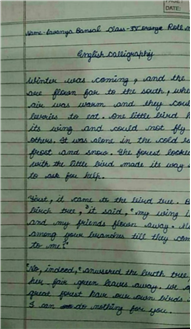 DATE:
Name- Lavanya Bansal Class- IV Lavanya Roll n
English Calligraphy
Winter was coming, and the
are flown far to the south, wh
air was warm and they cou
berries to eat. One little bird h
its wing and could not fly
others. It was alone in the cold w
frost and snow. The forest looke
with the little bird made its way
to ask for help.
First, it came to the birch tree.
birch tree," it said, "my wing
and my friends flown away. M
among your branches till they com
to me".
"No, indeed," answered the birch tree
her fair green leaves away. We
great forest have our own birds.
I can do nothing for you.